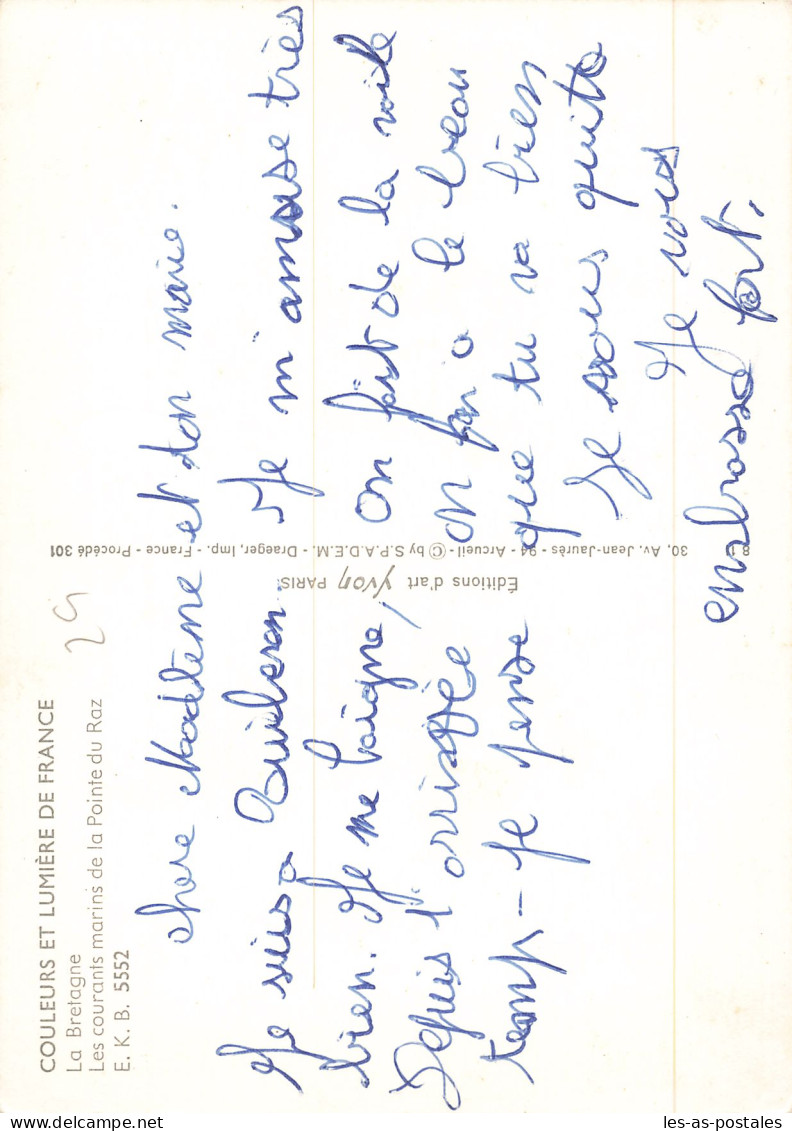 COULEURS ET LUMIÈRE DE FRANCE
La Bretagne
Les courants marins de la Pointe du Raz
E. K. B. 5552
29
chère Madleme et ton marie.
Je suis a Quiberon. Je m'amuse très
bien. Je me baigne, On fait de la voile
Depuis l'orrissée on on a le beau
temp - Je pense que tu va bien
Je vous quitte
Je vous
enbrasse fort.
Éditions d'art Yvon PARIS
30, Av. Jean-Jaurès - 94 - Arcueil - © by S.P.A.D.E.M. - Draeger, Imp. - France - Procédé 301
les-as-postales